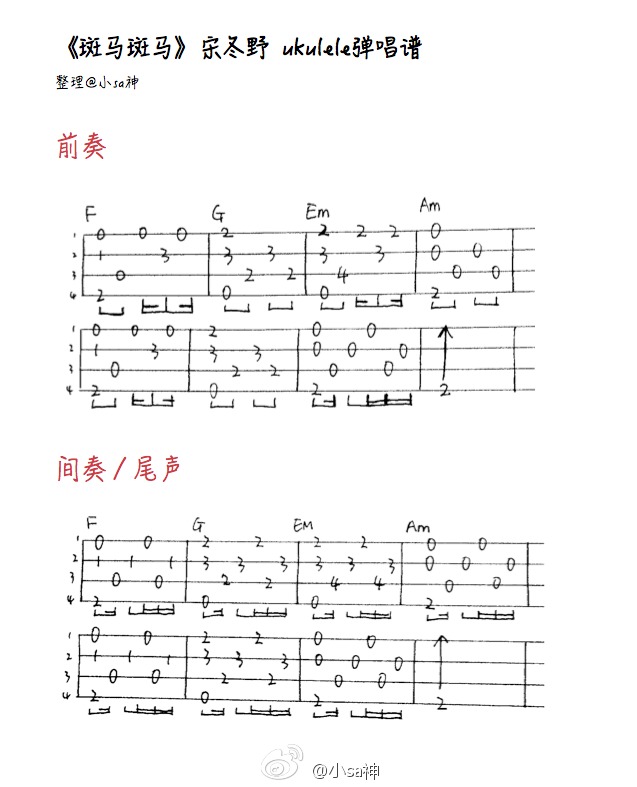 《斑马斑马》宋冬野 ukulele弹唱谱
整理@小sa神
前奏
F G Em Am
1 0 0 0 2 2 2 2 0
2 1 3 3 3 3 3 0 0
3 0 2 2 4 0 0
4 2 0 0 2
1 0 0 0 2 0 0
2 1 3 3 3 0 0 0
3 0 2 2 0 0
4 2 0 2 2
间奏/尾声
F G EM Am
1 0 0 2 2 2 2 0 0
2 1 1 1 3 3 3 3 3 3 0 0 0
3 0 0 2 2 4 4 0 0
4 2 0 0 2
1 0 0 2 2 0 0
2 1 1 1 3 3 3 0 0 0
3 0 0 2 2 0 0
4 2 0 2 2
@小sa神